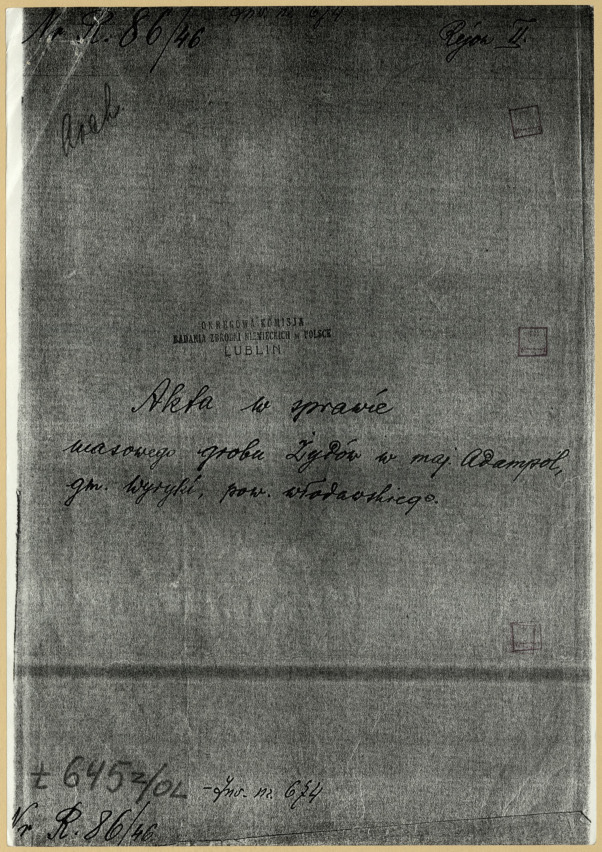 Nr R. 86/46
Rejon II.
OKRĘGOWA KOMISJA
BADANIA ZBRODNI NIEMIECKICH w POLSCE
LUBLIN
Akta w sprawie
masowego grobu Żydów w maj. Adampol,
gm. Wyryki, pow. włodawskiego.
t 6452/OL - Inw. nr. 674
Nr R. 86/46